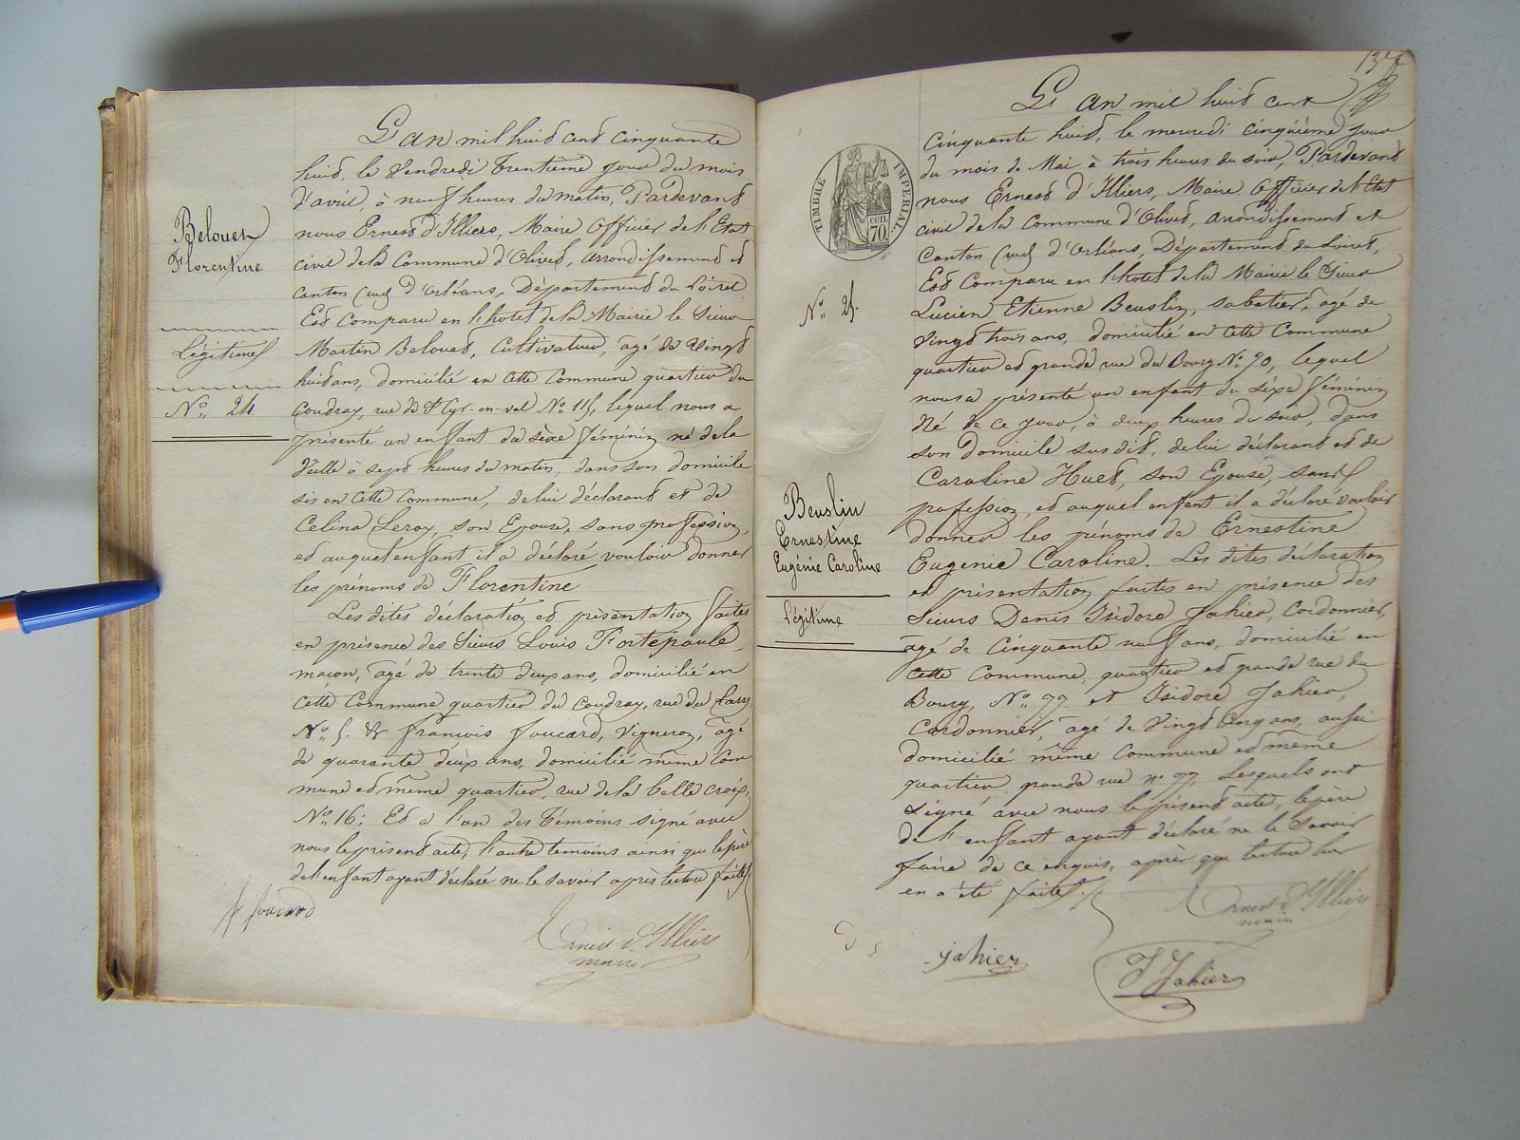 L'an mil huit cent cinquante
huit, le Vendredi trentième jour du mois
d'avril, à neuf heures du matin, Pardevant
nous Ernest d'Illiers, Maire Officier de l'Etat
civil de la Commune d'Olivet, arrondissement et
Canton sud d'Orléans, Département du Loiret
Est Comparu en l'hotel de la Mairie le Sieur
Martin Belouet, Cultivateur, agé de Vingt
huit ans, domicilié en cette Commune quartier du
Coudray, rue de St Cyr-en-val No 115, lequel nous a
présenté un enfant du sèxe féminin né de la
Veille à sept heures du matin, dans son domicile
sis en cette Commune, de lui déclarant et de
Celina Leroy, son Epouse, sans profession,
et auquel enfant il a déclaré vouloir donner
les prénoms de Florentine
Les dites déclaration et présentation faites
en présence des Sieurs Louis Fortepaule,
maçon, agé de trente deux ans, domicilié en
cette Commune quartier du Coudray, rue du
No 5. & françois foucard, Vigneron, agé
de quarante deux ans, domicilié même Com
mune et même quartier, rue de la belle croix,
No 16; Et a l'un des Témoins signé avec
nous le présent acte, l'autre temoins ainsi que le père
de l'enfant ayant déclaré ne le savoir après lecture faite
foucard
Ernest d'Illiers
maire
Belouet
Florentine
Légitime
No 24
L'an mil huit cent
cinquante huit, le mercredi cinquième jour
du mois de Mai à trois heures du soir, Pardevant
nous Ernest d'Illiers, Maire Officier de l'Etat
civil de la Commune d'Olivet, arrondissement et
Canton sud d'Orléans, Département du Loiret,
Est Comparu en l'hotel de la Mairie le Sieur
Lucien Etienne Beuslin, sabotier, agé de
Vingt trois ans, domicilié en cette Commune
quartier et grande rue du Bourg No 90, lequel
nous a présenté un enfant du sèxe féminin
Né de ce jour, à deux heures du soir, dans
son domicile susdit, de lui déclarant et de
Caroline Huet, son Epouse, sans
profession, et auquel enfant il a déclaré vouloir
donner les prénoms de Ernestine
Eugenie Caroline. Les dites déclaration
et présentation faites en présence des
Sieurs Denis Isidore Jahier, Cordonnier,
agé de Cinquante neuf ans, domicilié en
cette Commune, quartier et grande rue du
Bourg, No 99 et Isidore Jahier,
Cordonnier, agé de Vingt cinq ans, aussi
domicilié même Commune et même
quartier, grande rue no 99. Lesquels ont
signé avec nous le présent acte, le père
de l'enfant ayant déclaré ne le savoir
faire de ce enquis, après que lecture lui
en a été faite.
Ernest d'Illiers
maire
jahier
I Jahier
TIMBRE IMPERIAL
CEN. 70
No 25.
Beuslin
Ernestine
Eugénie Caroline
Légitime